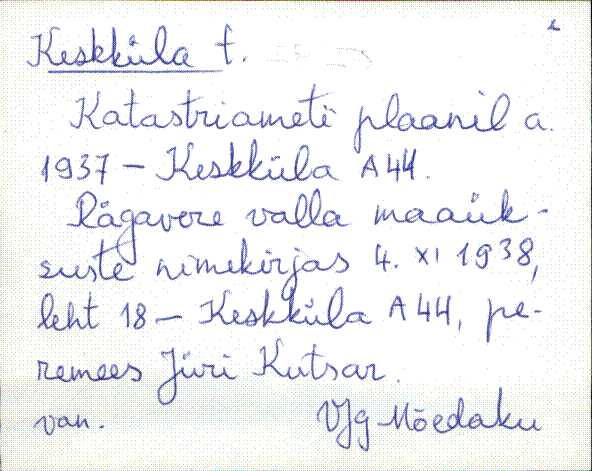 Keskküla t.
Katastriameti plaanil a.
1937 – Keskküla A44.
Rägavere valla maaük-
suste nimekirjas 4. XI 1938,
leht 18 – Keskküla A44, pe-
remees Jüri Kutsar.
van. VJg Mõedaku